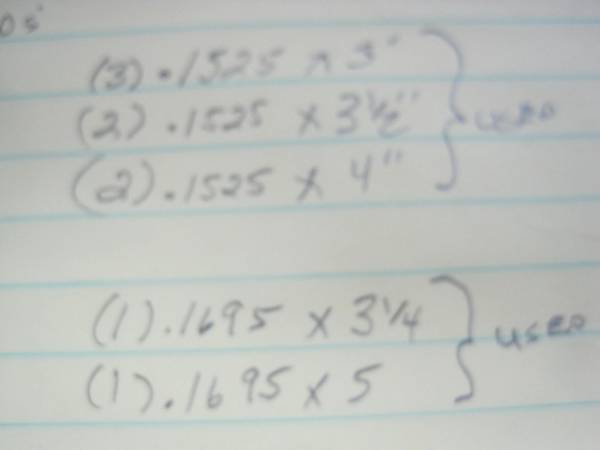 (3) .1525 x 3"
(2) .1525 x 3 1/2"
(2) .1525 x 4"
used
(1) .1695 x 3 1/4
(1) .1695 x 5
used